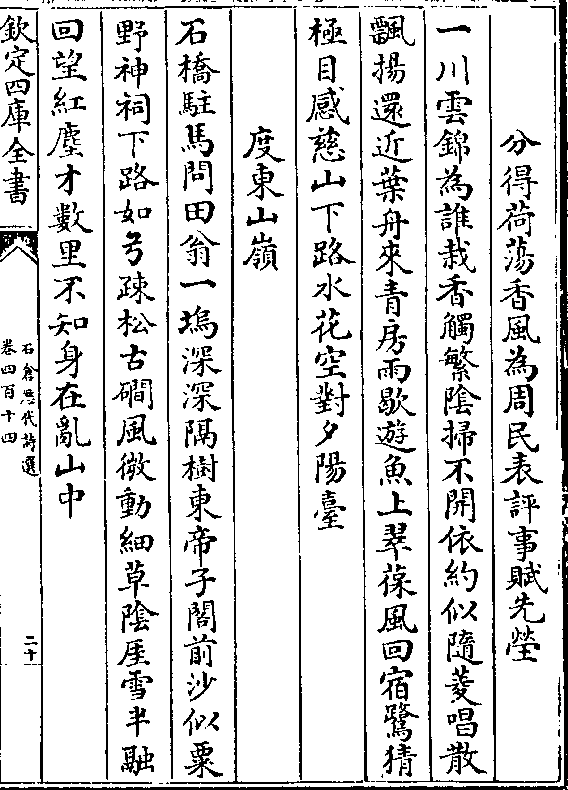 分得荷蕩香風為周民表評事賦先塋
一川雲錦為誰栽香觸繁陰掃不開依約似隨菱唱散
飄揚還近葉舟來青房雨歇遊魚上翠葆風回宿鷺猜
極目感慈山下路水花空對夕陽臺
度東山嶺
石橋駐馬問田翁一塢深深隔樹東帝子閣前沙似粟
野神祠下路如弓疎松古磵風微動細草陰厓雪半融
回望紅塵才數里不知身在亂山中
欽定四庫全書
石倉歴代詩選
卷四百十四
二十